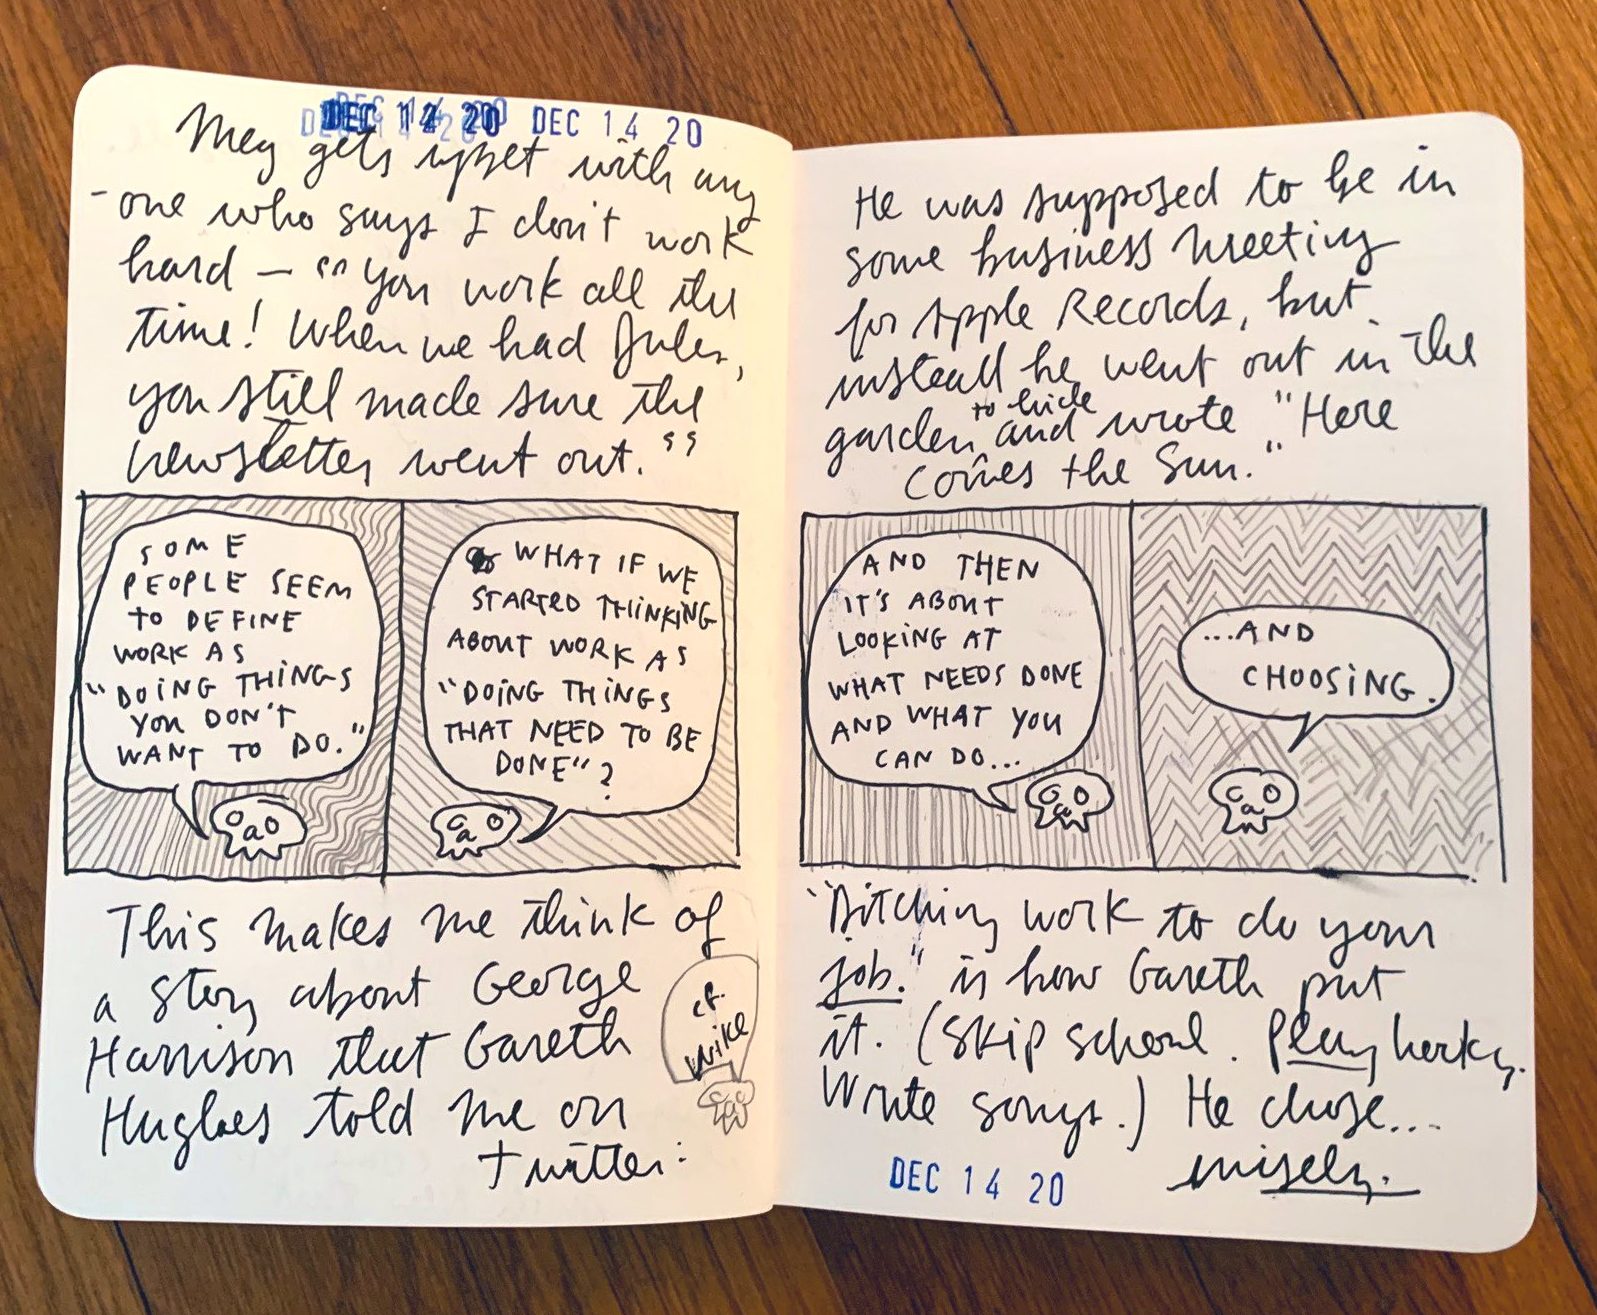 DEC 14 20 DEC 14 20
Meg gets upset with any
-one who says I don't work
hard — "You work all the
time! When we had Jules,
you still made sure the
newsletter went out."
SOME
PEOPLE SEEM
TO DEFINE
WORK AS
"DOING THINGS
YOU DON'T
WANT TO DO."
WHAT IF WE
STARTED THINKING
ABOUT WORK AS
"DOING THINGS
THAT NEED TO BE
DONE"?
This makes me think of
a story about George
Harrison that Gareth
Hughes told me on
Twitter:
cf.
Mike
He was supposed to be in
some business meeting
for Apple Records, but
instead he went out in the
garden to hide and wrote "Here
Comes the Sun."
AND THEN
IT'S ABOUT
LOOKING AT
WHAT NEEDS DONE
AND WHAT YOU
CAN DO...
...AND
CHOOSING.
"Ditching work to do your
job." is how Gareth put
it. (Skip school. Play hooky.
Write songs.) He chose...
wisely.
DEC 14 20